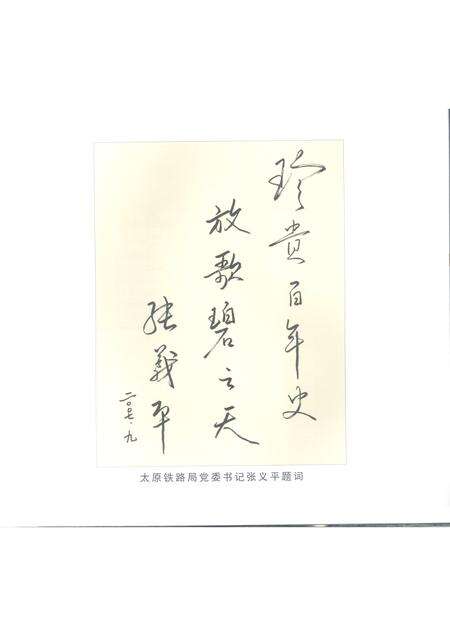 珍贵百年史
放歌碧云天
张义平
二〇〇七·九
太原铁路局党委书记张义平题词